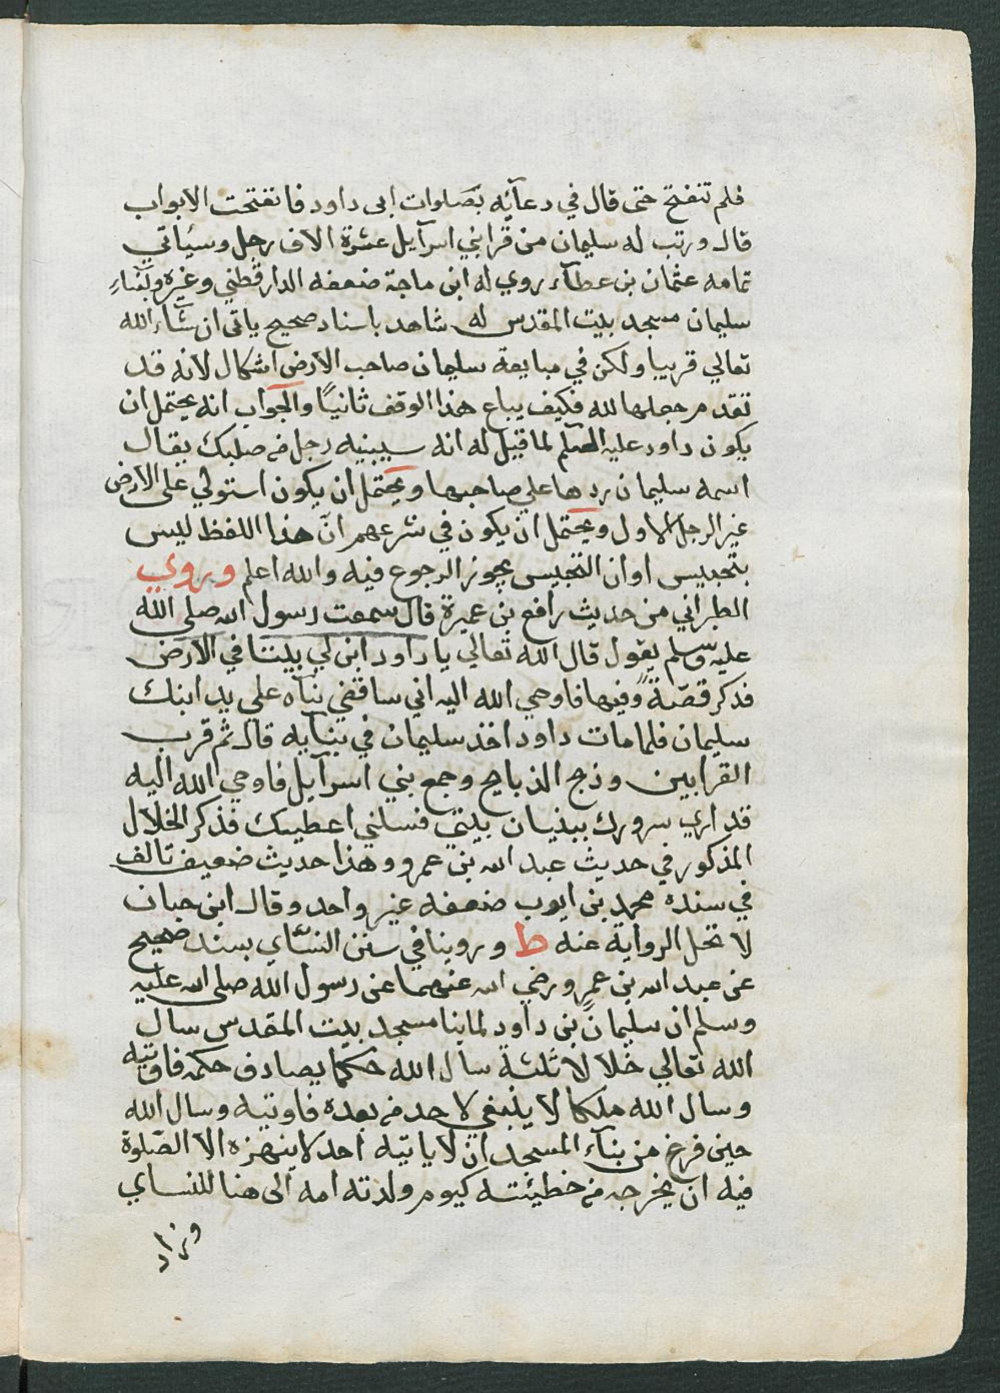 فلم تنفتح حتى قال في دعآئه بصلوات ابى داود فانفتحت الابواب
قال ورتب له سليمان من قرا بني اسرآيل عشرة الاف رجل وسيأتي
تمامه عثمان بن عطآء روي له ابن ماجة ضعفه الدارقطني وغيره ولبناء
سليمان مسجد بيت المقدس له شاهد باسناد صحيح ياتى ان شآء الله
تعالي قريبا ولكن في مبايعة سليمان صاحب الارض اشكال لانه قد
تقدم جعلها لله فكيف يباع هذا الوقف ثانيًا والجواب انه يحتمل ان
يكون داود عليه السلم لما قيل له انه سيبنيه رجل من صلبك يقال
اسمه سليمان ردها علي صاحبها ويحتمل ان يكون استولي على الارض
غير الرجل الاول ويحتمل ان يكون في شرعهم انّ هذا اللفظ ليس
بتحبيس او ان التحبيس يجوز الرجوع فيه والله اعلم وروي
الطبراني من حديث رافع بن عميرة قال سمعت رسول الله صلى الله
عليه وسلم يقول قال الله تعالي يا داود ابن لي بيتا في الارض
فذكر قصّة وفيها فاوحي الله اليه اني ساقضي بنآه علي يد ابنك
سليمان فلما مات داود اخذ سليمان في بنآيه قال ثم قرب
القرابين وذبح الذبايح وجمع بني اسرآيل فاوحي الله اليه
قد اري سرورك ببنيان بيتي فسلني اعطيك فذكر الخلال
المذكور في حديث عبد الله بن عمرو وهذا حديث ضعيف تالف
في سنده محمد بن ايوب ضعفه غير واحد وقال ابن حبان
لا تحل الرواية عنه ط وروينا في سنن النسّاي بسند صحيح
عن عبد الله بن عمرو رضي الله عنهما عن رسول الله صلى الله عليه
وسلم ان سليمان بن داود لما بنا مسجد بيت المقدس سال
الله تعالي خلالا ثلثة سال الله حكما يصادف حكمه فاوتيه
وسال الله ملكا لا ينبغي لاحد من بعده فاوتيه وسال الله
حين فرغ من بنآء المسجد ان لا ياتيه احد لا ينهزه الا الصّلوة
فيه ان يخرجه من خطيئته كيوم ولدته امه الى هنا للنساي
وزاد